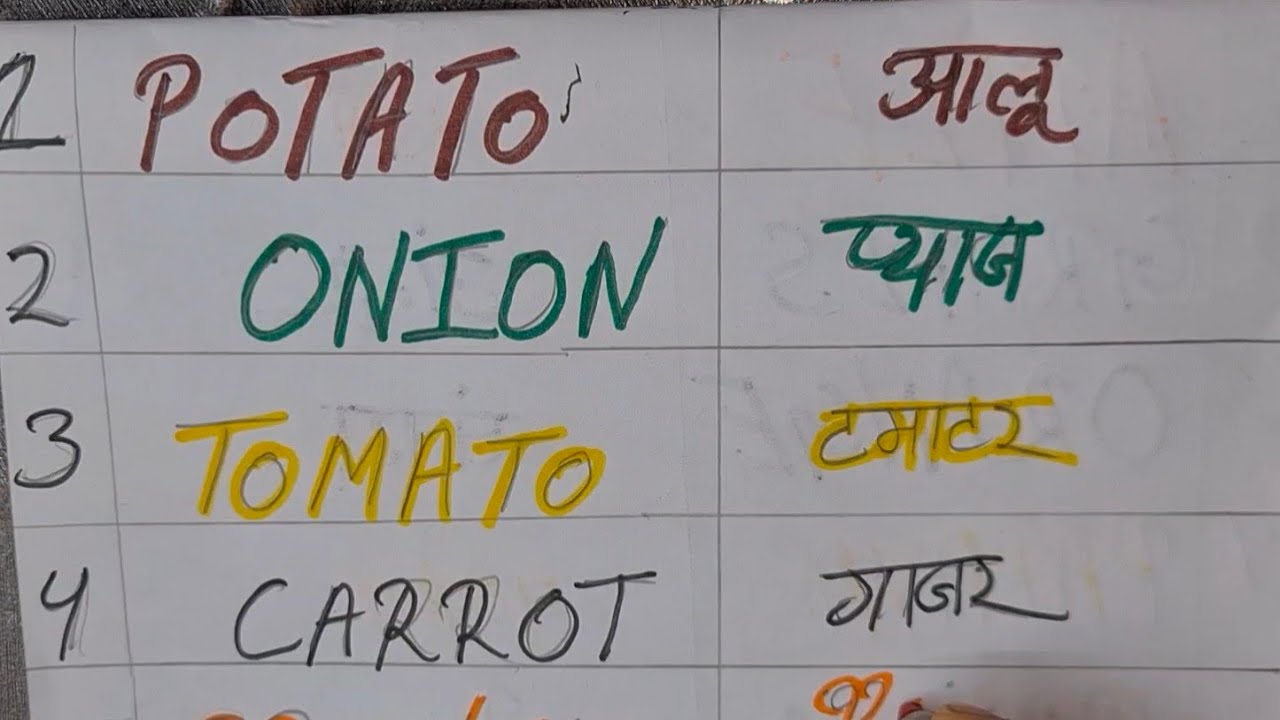 1 POTATO आलू
2 ONION प्याज
3 TOMATO टमाटर
4 CARROT गाजर